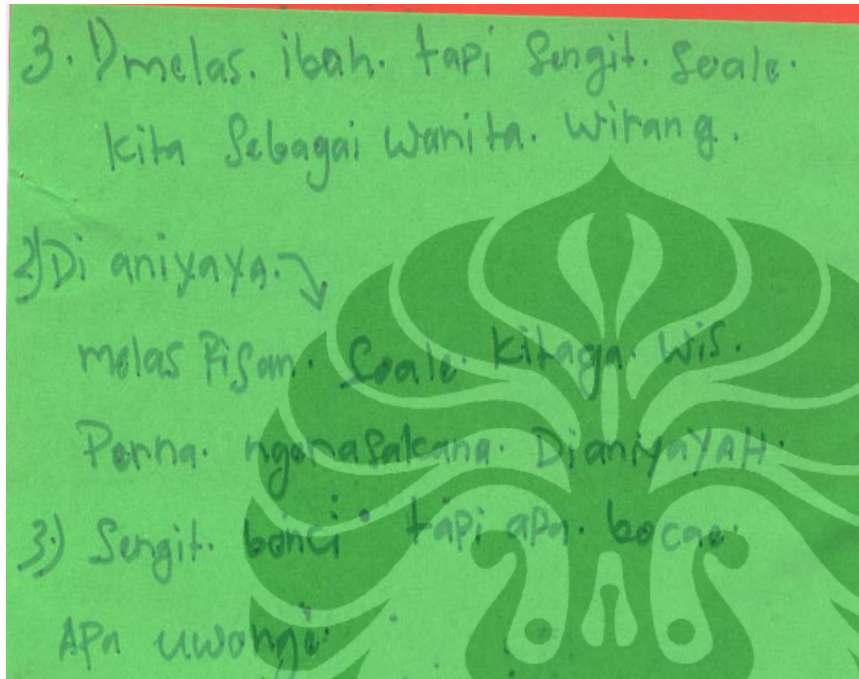 3. 1) melas. ibah. tapi Sengit. Soale.
kita Sebagai wanita. wirang.
2) Di aniyaya. →
melas Pisan. Soale. kitaga. wis.
Perna. ngerasakana. DianiyaYAH.
3.) Sengit. banci. tapi apa. bocae.
APa uwonge.